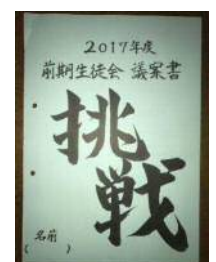 2017年度
前期生徒会 議案書
挑
戦
名前
(　　)